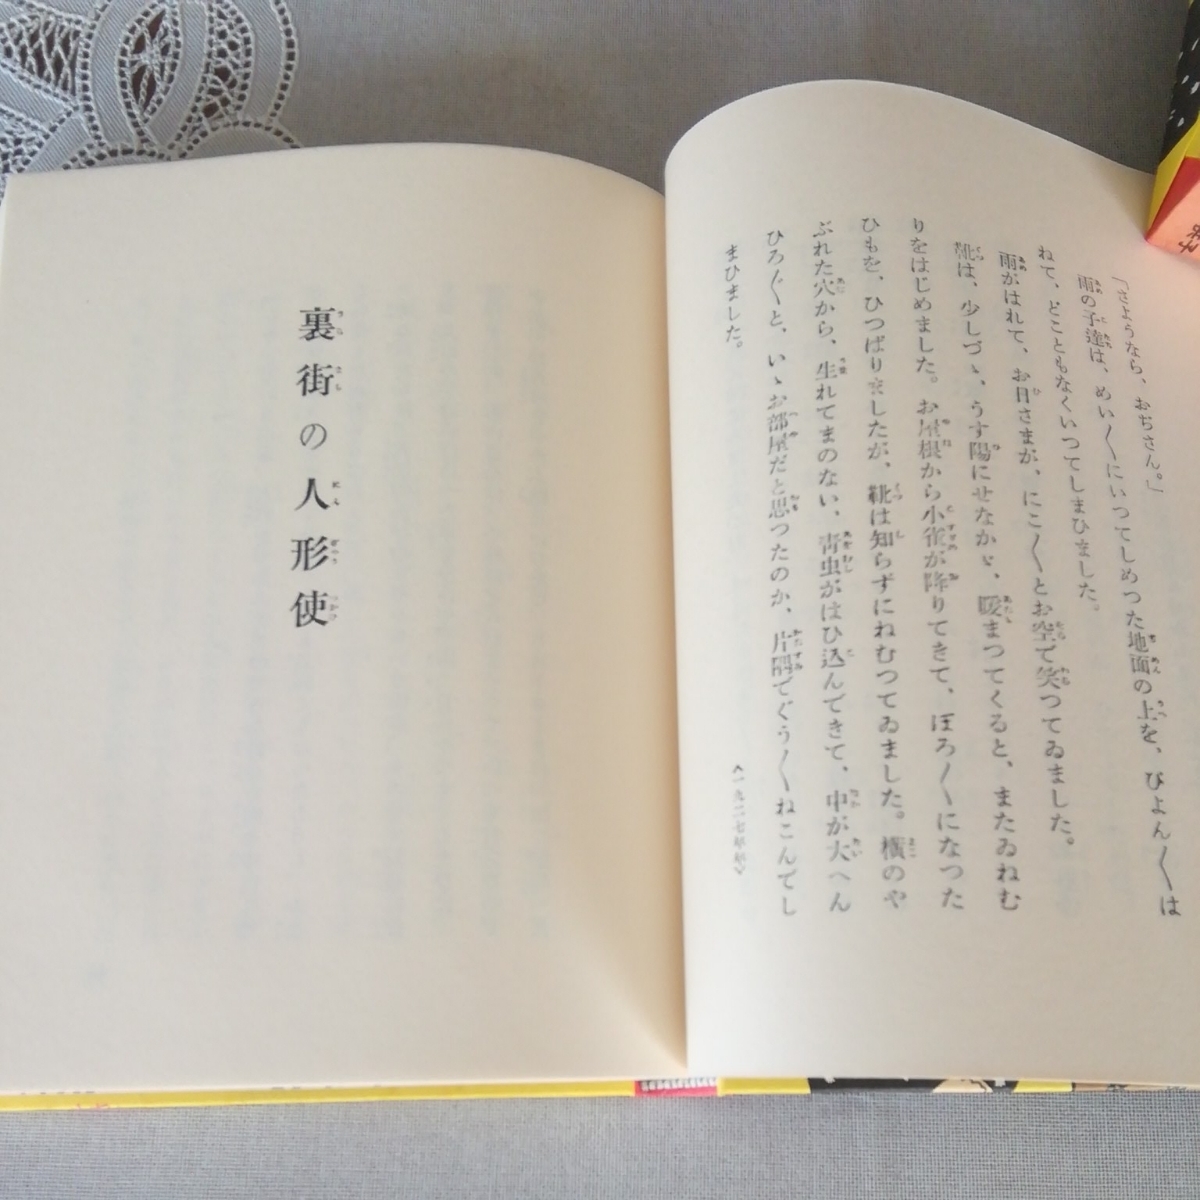 「さようなら、おぢさん。」
雨の子達は、めい／＼にいつてしめつた地面の上を、ぴよん／＼は
ねて、どこともなくいつてしまひました。
雨がはれて、お日さまが、にこ／＼とお空で笑つてゐました。
靴は、少しづゝ、うす陽にせなかゞ、暖まつてくると、またゐねむ
りをはじめました。お屋根から小雀が降りてきて、ぼろ／＼になつた
ひもを、ひつぱりましたが、靴は知らずにねむつてゐました。横のや
ぶれた穴から、生れてまのない、青虫がはひ込んできて、中が大へん
ひろ／″＼と、いゝお部屋だと思つたのか、片隅でぐう／＼ねこんでし
まひました。
〈一九二七年年〉
裏街の人形使